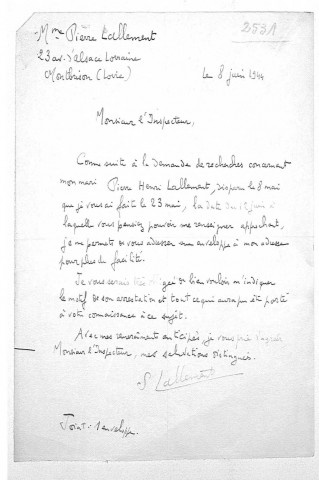 Mme Pierre Lallement
2531
23 av. d'Alsace Lorraine
Montbrison (Loire)
le 8 juin 1944
Monsieur l'Inspecteur,
Comme suite à la demande de recherches concernant
mon mari Pierre Henri Lallement, disparu le 8 mai
que je vous ai faite le 23 mai, la date du juin à
laquelle vous pensiez pouvoir me renseigner approchant,
je me permets de vous adresser une enveloppe à mon adresse
pour plus de facilité.
Je vous serais très obligée de bien vouloir m'indiquer
le motif de son arrestation et tout ce qui aura pu être porté
à votre connaissance à ce sujet.
Avec mes remerciements anticipés, je vous prie d'agréer
Monsieur l'Inspecteur, mes salutations distinguées.
S Lallement
Joint : 1 enveloppe.